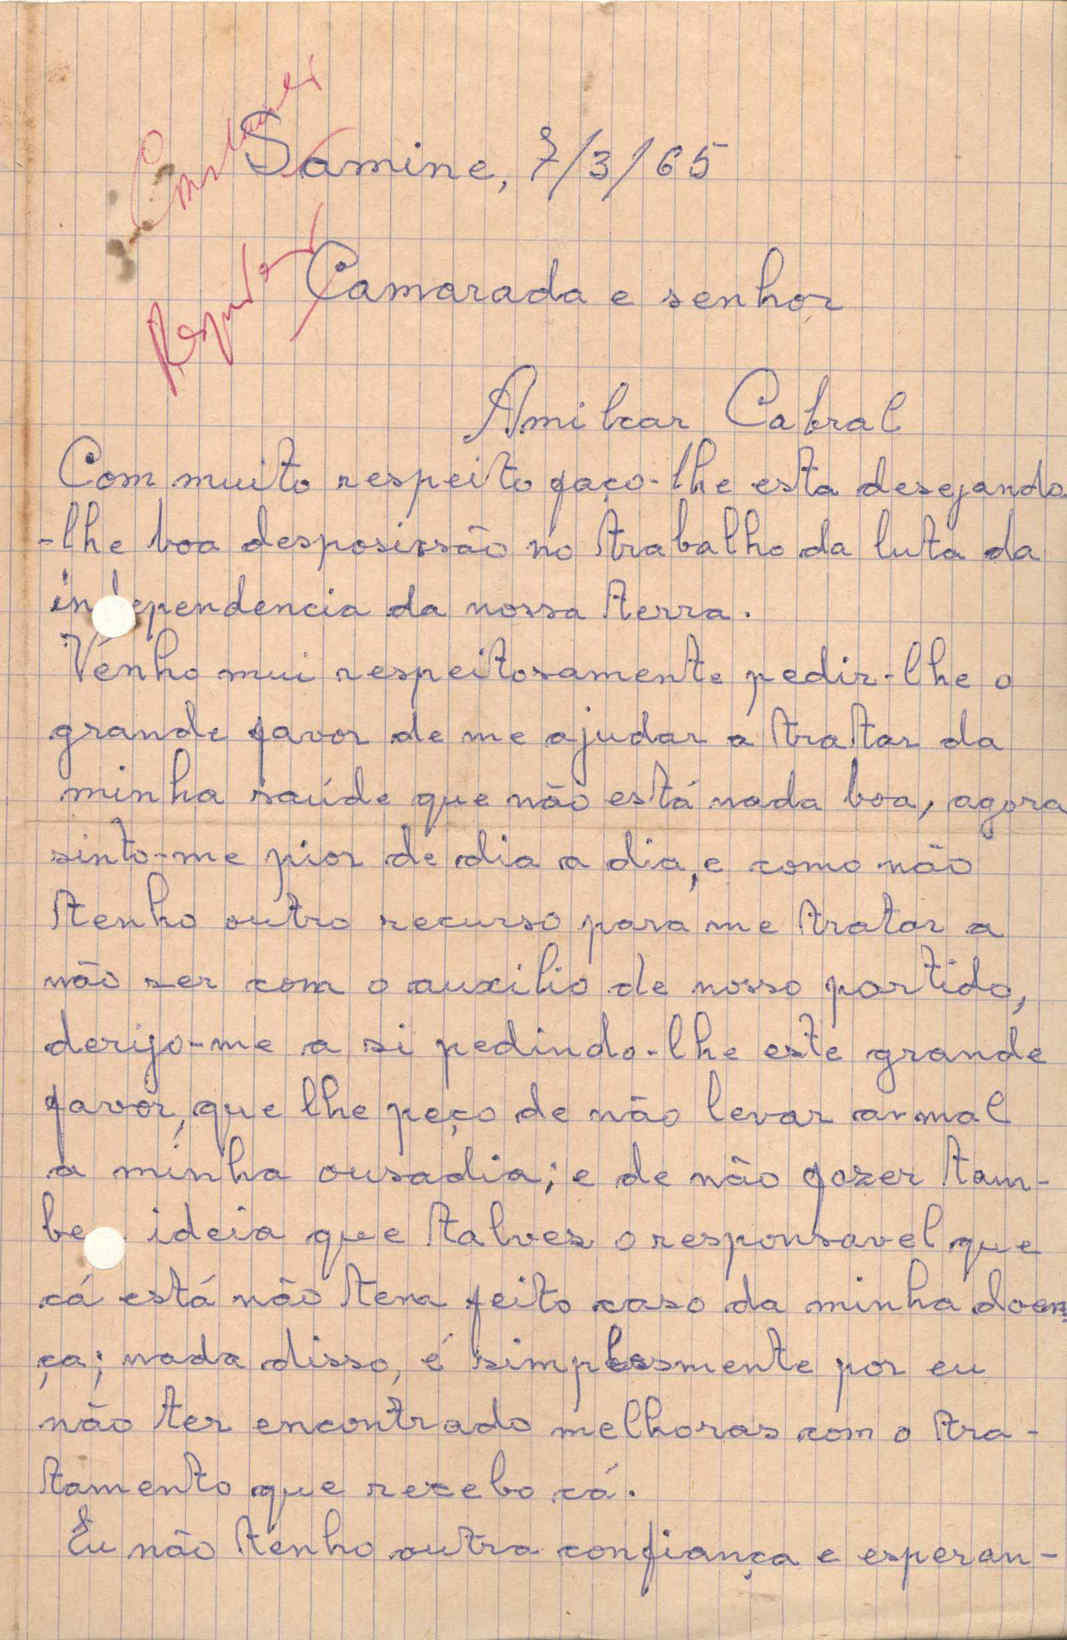 Samine, 7/3/65
Camarada e senhor
Amilcar Cabral
Com muito respeito faço-lhe esta desejando
-lhe boa desposissão no trabalho da luta da
independencia da nossa terra.
Venho mui respeitosamente pedir-lhe o
grande favor de me ajudar a tratar da
minha saúde que não está nada boa, agora
sinto-me pior de dia a dia, e como não
tenho outro recurso para me tratar a
não ser com o auxilio de nosso partido,
derijo-me a si pedindo-lhe este grande
favor, que lhe peço de não levar a mal
a minha ousadia; e de não fazer tam-
be ideia que talves o responsavel que
cá está não tem feito caso da minha doen
ça; nada disso, é simplesmente por eu
não ter encontrado melhoras com o tra-
tamento que recebo cá.
Eu não tenho outra confiança e esperan-